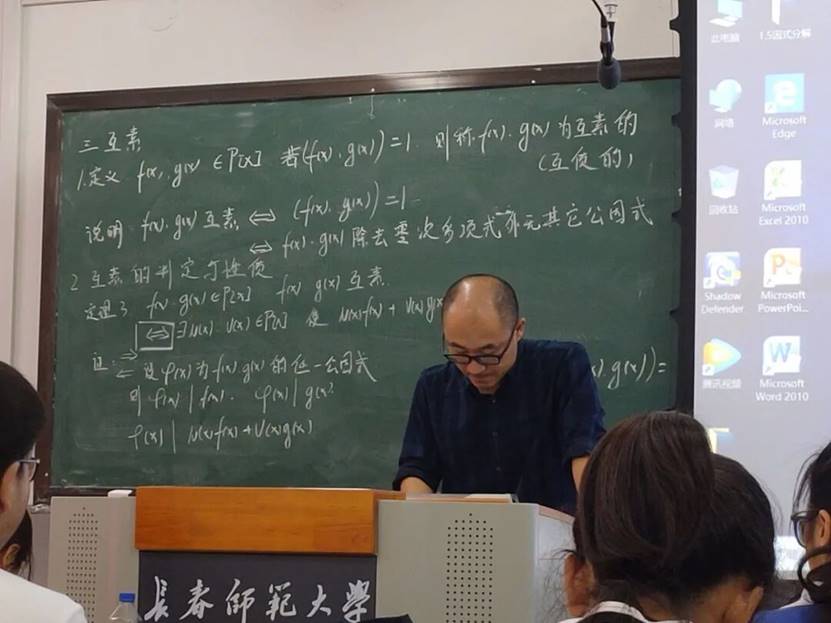 三 互素
1.定义 f(x), g(x) ∈ P[x] 若(f(x), g(x))=1. 则称 f(x), g(x) 为互素的
(互质的)
说明 f(x), g(x) 互素 ⇔ (f(x), g(x))=1
⇔ f(x), g(x) 除去零次多项式外无其它公因式
2 互素的判定与性质
定理3 f(x), g(x) ∈ P[x] f(x), g(x) 互素
⇔ ∃ u(x), v(x) ∈ P[x] 使 u(x)f(x) + v(x)g(x
证: ⇒
⇐ 设 φ(x) 为 f(x), g(x) 的任一公因式
), g(x))=
则 φ(x) | f(x), φ(x) | g(x)
φ(x) | u(x)f(x)+v(x)g(x)
長春師範大學
此电脑
1.5因式分解
网络
Microsoft Edge
回收站
Microsoft Excel 2010
Shadow Defender
Microsoft PowerPoi...
腾讯视频
Microsoft Word 2010